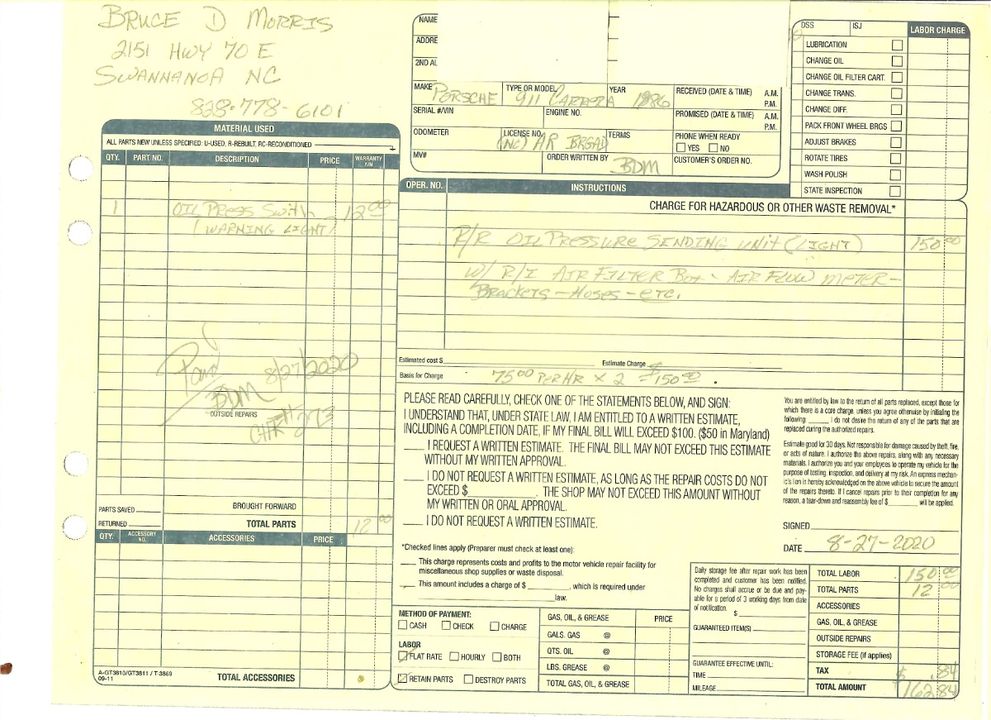 BRUCE D MORRIS
2151 HWY 70 E
SWANNANOA NC
828-778-6101
NAME
ADDRE
2ND AL
MAKE PORSCHE TYPE OR MODEL 911 CARRERA YEAR 1986 RECEIVED (DATE & TIME) A.M. P.M.
SERIAL #/VIN ENGINE NO. PROMISED (DATE & TIME) A.M. P.M.
ODOMETER LICENSE NO. (NC) TERMS PHONE WHEN READY
YES NO
MV# ORDER WRITTEN BY BDM CUSTOMER'S ORDER NO.
DSS ISJ LABOR CHARGE
LUBRICATION
CHANGE OIL
CHANGE OIL FILTER CART.
CHANGE TRANS.
CHANGE DIFF.
PACK FRONT WHEEL BRGS
ADJUST BRAKES
ROTATE TIRES
WASH POLISH
STATE INSPECTION
MATERIAL USED
ALL PARTS NEW UNLESS SPECIFIED: U-USED, R-REBUILT, RC-RECONDITIONED
QTY. PART NO. DESCRIPTION PRICE WARRANTY Y/N
1 OIL PRESS Swith 12 00
(WARNING LIGHT)
Paid 8/27/2020
BDM
OUTSIDE REPAIRS
PARTS SAVED BROUGHT FORWARD
RETURNED TOTAL PARTS 12 00
QTY. ACCESSORY NO. ACCESSORIES PRICE
A-GT3810/GT3811 / T-3869
09-11
TOTAL ACCESSORIES
OPER. NO. INSTRUCTIONS
CHARGE FOR HAZARDOUS OR OTHER WASTE REMOVAL*
R/R OIL PRESSURE SENDING UNIT (LIGHT) 150 00
W/ R/I AIR FILTER BOX - AIR FLOW METER -
BRACKETS - HOSES - ETC.
Estimated cost $ Estimate Charge
Basis for Charge 75 00 PER HR x 2 = $150 00.
PLEASE READ CAREFULLY, CHECK ONE OF THE STATEMENTS BELOW, AND SIGN:
I UNDERSTAND THAT, UNDER STATE LAW, I AM ENTITLED TO A WRITTEN ESTIMATE,
INCLUDING A COMPLETION DATE, IF MY FINAL BILL WILL EXCEED $100. ($50 in Maryland)
I REQUEST A WRITTEN ESTIMATE. THE FINAL BILL MAY NOT EXCEED THIS ESTIMATE
WITHOUT MY WRITTEN APPROVAL.
I DO NOT REQUEST A WRITTEN ESTIMATE, AS LONG AS THE REPAIR COSTS DO NOT
EXCEED $ . THE SHOP MAY NOT EXCEED THIS AMOUNT WITHOUT
MY WRITTEN OR ORAL APPROVAL.
I DO NOT REQUEST A WRITTEN ESTIMATE.
*Checked lines apply (Preparer must check at least one):
This charge represents costs and profits to the motor vehicle repair facility for
miscellaneous shop supplies or waste disposal.
This amount includes a charge of $ , which is required under
law.
You are entitled by law to the return of all parts replaced, except those for
which there is a core charge, unless you agree otherwise by initialing the
following: I do not desire the return of any of the parts that are
replaced during the authorized repairs.
Estimate good for 30 days. Not responsible for damage caused by theft, fire,
or acts of nature. I authorize the above repairs, along with any necessary
materials. I authorize you and your employees to operate my vehicle for the
purpose of testing, inspection, and delivery at my risk. An express mechan-
ic's lien is hereby acknowledged on the above vehicle to secure the amount
of the repairs thereto. If I cancel repairs prior to their completion for any
reason, a tear-down and reassembly fee of $ will be applied.
SIGNED
DATE 8-27-2020
METHOD OF PAYMENT:
CASH CHECK CHARGE
LABOR
FLAT RATE HOURLY BOTH
RETAIN PARTS DESTROY PARTS
GAS, OIL, & GREASE PRICE
GALS. GAS @
QTS. OIL @
LBS. GREASE @
TOTAL GAS, OIL, & GREASE
Daily storage fee after repair work has been
completed and customer has been notified.
No charges shall accrue or be due and pay-
able for a period of 3 working days from date
of notification. $
GUARANTEED ITEM(S)
GUARANTEE EFFECTIVE UNTIL:
TIME
MILEAGE
TOTAL LABOR 150 00
TOTAL PARTS 12 00
ACCESSORIES
GAS, OIL, & GREASE
OUTSIDE REPAIRS
STORAGE FEE (if applies)
TAX $ .84
TOTAL AMOUNT $162.84